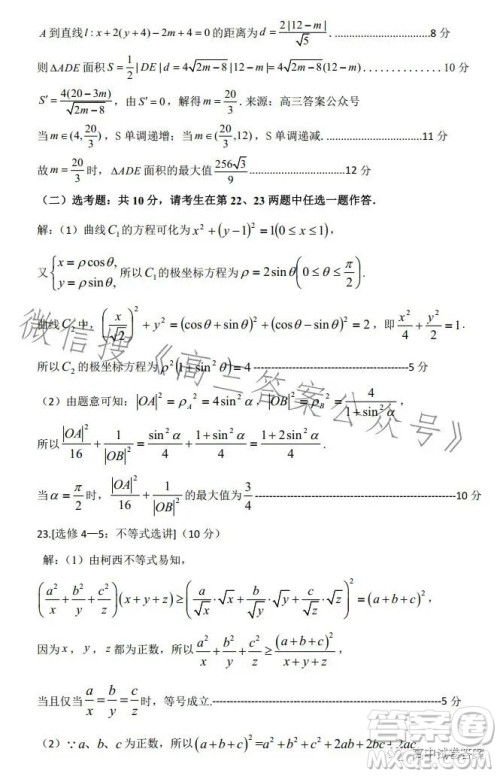 A 到直线 l : x + 2(y + 4) − 2m + 4 = 0 的距离为 d = 2|12 − m| / √5 . ……………………8 分
则 ΔADE 面积 S = 1/2 |DE| d = 4√(2m − 8) |12 − m| = 4√(2m − 8)(12 − m) ……………10 分
S′ = 4(20 − 3m) / √(2m − 8) ，由 S′ = 0，解得 m = 20/3 . 来源：高三答案公众号
当 m ∈ (4, 20/3)，S 单调递增；当 m ∈ (20/3, 12)，S 单调递减. ……………………11 分
故 m = 20/3 时，ΔADE 面积的最大值 256√3 / 9 ……………………12 分
（二）选考题：共 10 分，请考生在第 22、23 两题中任选一题作答.
解：（1）曲线 C₁ 的方程可化为 x² + (y − 1)² = 1(0 ≤ x ≤ 1)，
又 { x = ρcosθ, y = ρsinθ, 所以 C₁ 的极坐标方程为 ρ = 2sinθ (0 ≤ θ ≤ π/2) .
曲线 C₂ 中，(x/√2)² + y² = (cosθ + sinθ)² + (cosθ − sinθ)² = 2 ，即 x²/4 + y²/2 = 1 .
所以 C₂ 的极坐标方程为 ρ²(1 + sin²θ) = 4 ----------------------5 分
（2）由题意可知：|OA|² = ρ_A² = 4sin²α，|OB|² = ρ_B² = 4 / (1 + sin²α) ，
所以 |OA|²/16 + 1/|OB|² = sin²α/4 + (1 + sin²α)/4 = (1 + 2sin²α)/4 .
当 α = π/2 时，|OA|²/16 + 1/|OB|² 的最大值为 3/4 ----------------------10 分
23.[选修 4—5：不等式选讲]（10 分）
解：（1）由柯西不等式易知，
(a²/x + b²/y + c²/z)(x + y + z) ≥ (a/√x · √x + b/√y · √y + c/√z · √z)² = (a + b + c)² ，
因为 x，y，z 都为正数，所以 a²/x + b²/y + c²/z ≥ (a + b + c)² / (x + y + z) ，
当且仅当 a/x = b/y = c/z 时，等号成立.----------------------5 分
（2）∵ a、b、c 为正数，所以 (a + b + c)² = a² + b² + c² + 2ab + 2bc + 2ac
微信搜《高三答案公众号》